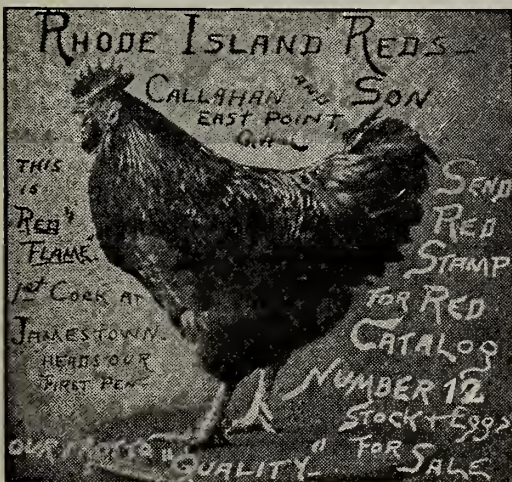 RHODE ISLAND REDS-
CALLAHAN AND SON
EAST POINT,
GA.
THIS
IS
"RED
FLAME"
1st COCK AT
JAMESTOWN.
HEADS OUR
FIRST PEN-
SEND
RED
STAMP
FOR RED
CATALOG
NUMBER 12
STOCK & EGGS
FOR SALE
OUR MOTTO "QUALITY"